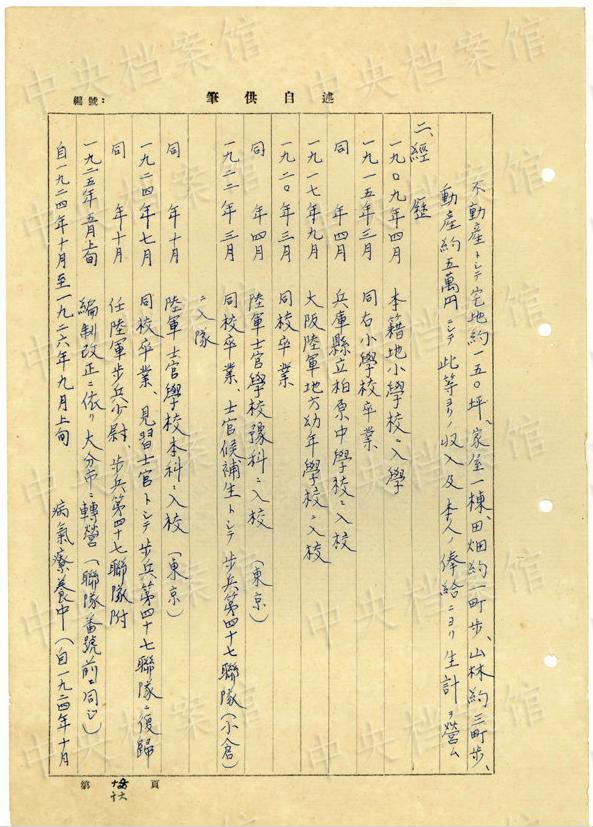 編號：
筆供自述
不動產トシテ宅地約一五〇坪、家屋一棟、田畑約一町步、山林約三町步、
動產約五萬円ニシテ此等ヨリノ收入及本人ノ俸給ニヨリ生計ヲ營ム
二、經歷
一九〇九年四月 本籍地小學校ニ入學
一九一五年三月 同右小學校卒業
同 年四月 兵庫縣立柏原中學校ニ入校
一九一七年九月 大阪陸軍地方幼年學校ニ入校
一九二〇年三月 同校卒業
同 年四月 陸軍士官學校豫科ニ入校（東京）
一九二二年三月 同校卒業、士官候補生トシテ步兵第四十七聯隊（小倉）
ニ入隊
同 年十月 陸軍士官學校本科ニ入校（東京）
一九二四年七月 同校卒業、見習士官トシテ步兵第四十七聯隊ニ復歸
同 年十月 任陸軍步兵少尉 步兵第四十七聯隊附
一九二五年五月上旬 編制改正ニ依リ大分市ニ轉營（聯隊番號前ニ同ジ）
自一九二四年十月至一九二六年九月上旬 病氣療養中（自一九二四年十月
第 十六 頁
中央档案馆